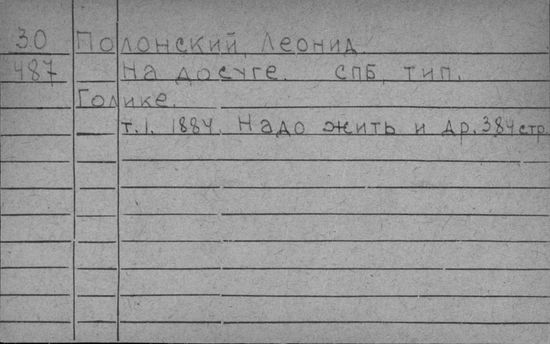 30 Полонский, Леонид.
487 На досуге. СПБ, тип.
Голике.
т.1. 1884. Надо жить и др. 384стр